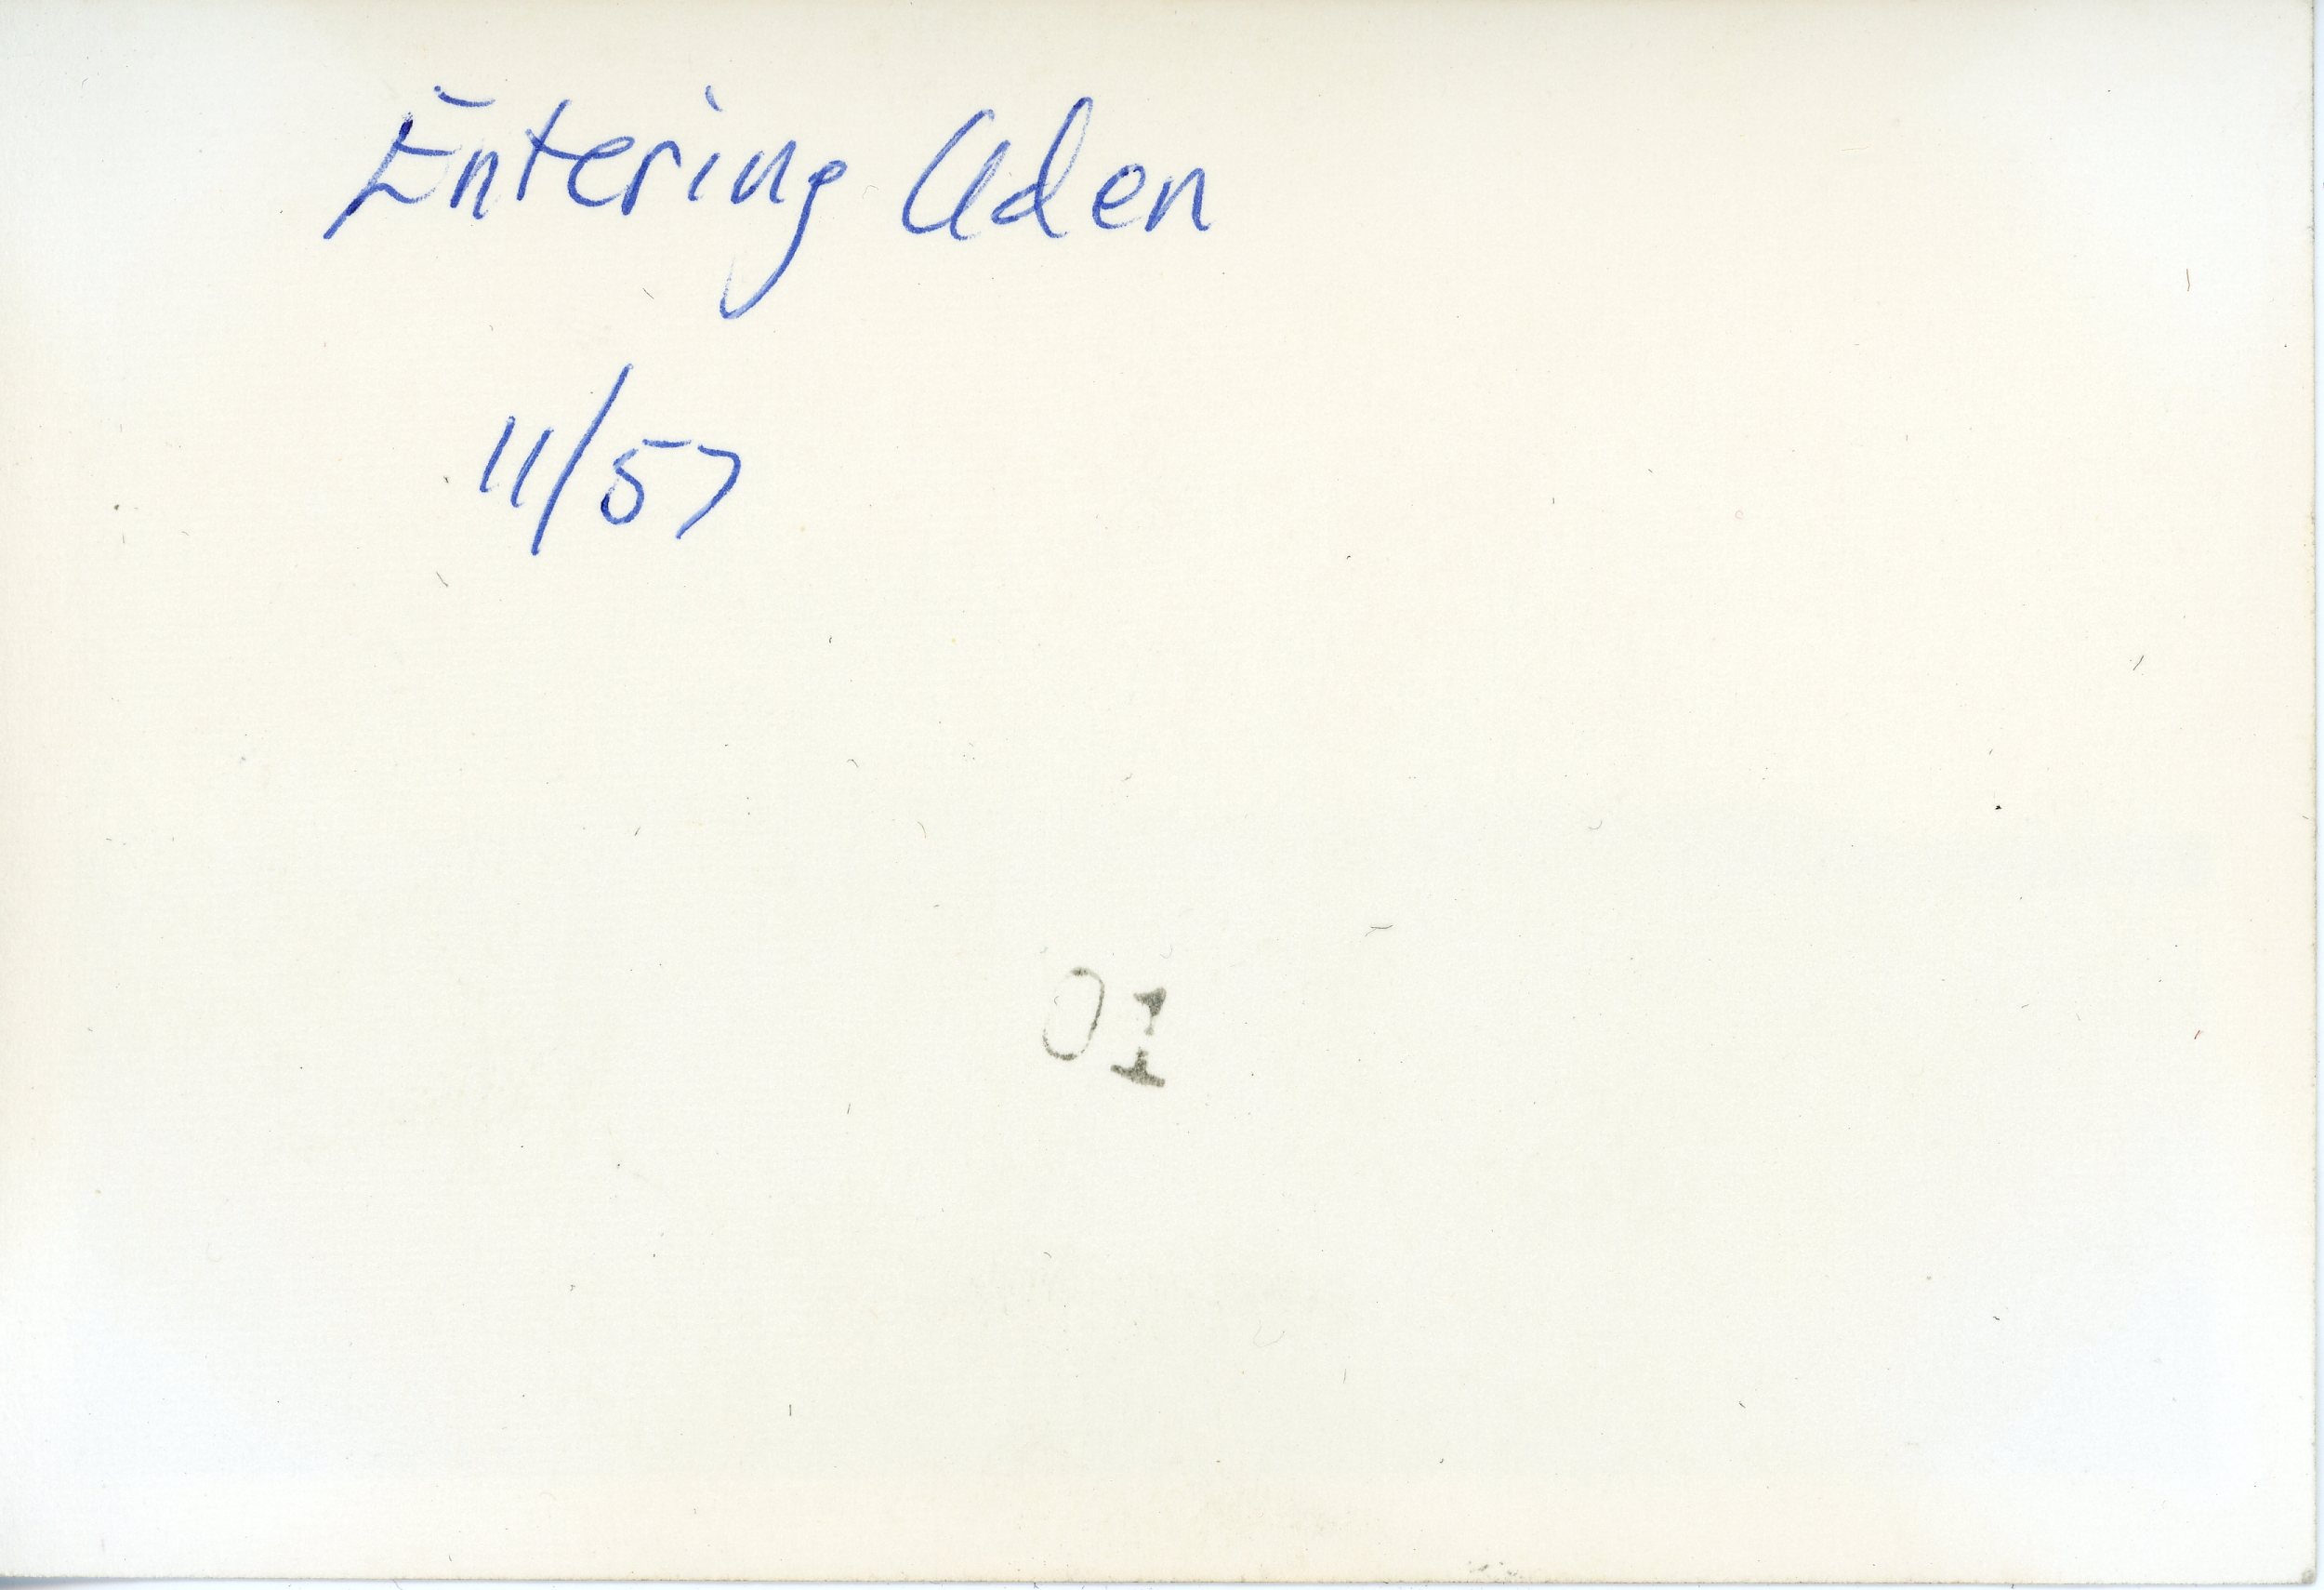 Entering Aden
11/57
01